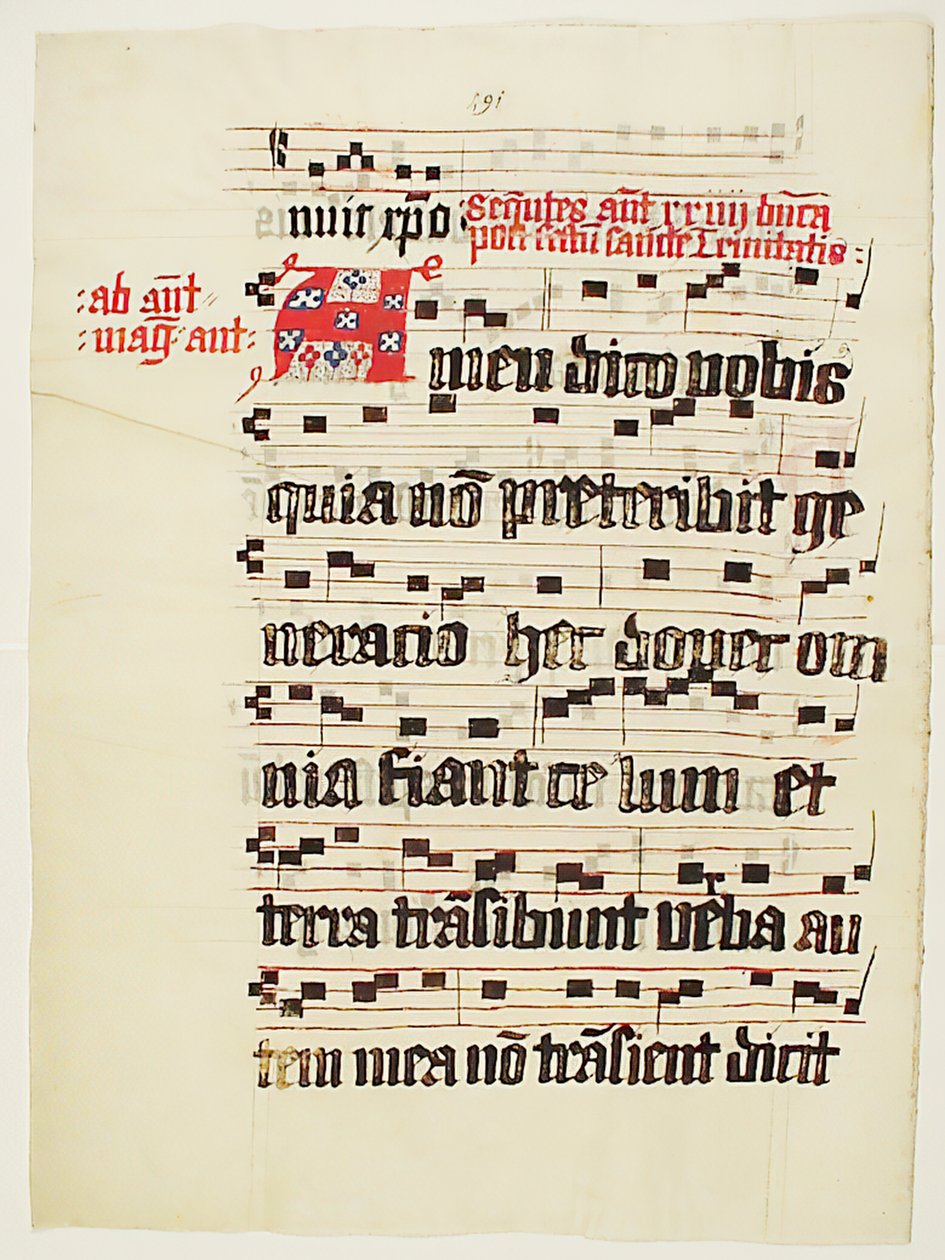 191
nuit xp̄o
Sequētes añt xxiiij dn̄ica
post festū sancte Trinitatis :
: ab añt
: maḡ ant :
Amen dico vobis
quia nō preteribit ge
neracio hec donec om
nia fiant ce lum et
terra trāsibunt v̓ba au
tem mea nō trāsient dicit